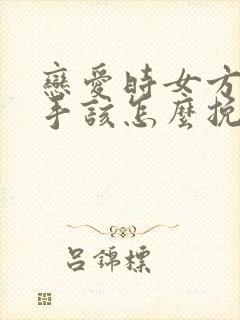 戀愛時女方
手該怎麼挽
吕錦標